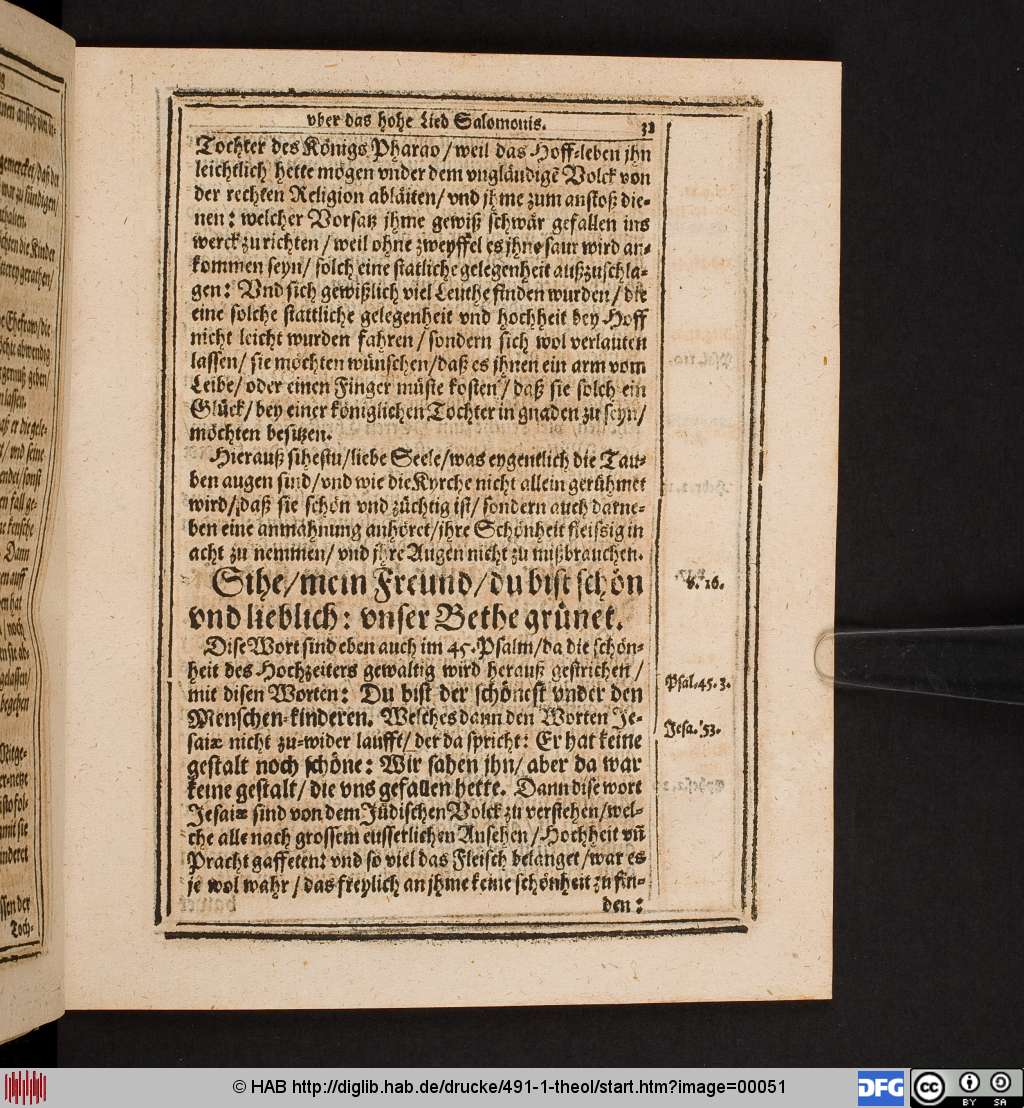 vber das hohe Lied Salomonis. 32
Tochter des Königs Pharao / weil das Hoff-leben jhn
leichtlich hette mögen vnder dem vngläudigẽ Volck von
der rechten Religion abläiten / vnd jhme zum anstoß die-
nen: welcher Vorsatz jhme gewiß schwär gefallen ins
werck zu richten / weil ohne zweyffel es jhne saur wird an-
kommen seyn / solch eine statliche gelegenheit außzuschla-
gen: Vnd sich gewißlich viel Leuthe finden wurden / die
eine solche stattliche gelegenheit vnd hochheit bey Hoff
nicht leicht wurden fahren / sondern sich wol verlauten
lassen / sie möchten wünschen / daß es jhnen ein arm vom
Leibe / oder einen Finger müste kosten / daß sie solch ein
Glück / bey einer königlichen Tochter in gnaden zu seyn /
möchten besitzen.
Hierauß sihestu / liebe Seele / was eygentlich die Tau-
ben augen sind / vnd wie die Kyrche nicht allein gerühmet
wird / daß sie schön vnd züchtig ist / sondern auch darne-
ben eine anmahnung anhöret / jhre Schönheit fleissig in
acht zu nemmen / vnd jhre Augen nicht zu mißbrauchen.
Sihe / mein Freund / du bist schön
vnd lieblich: vnser Bethe grünet.
v. 16.
Dise Wort sind eben auch im 45. Psalm / da die schön-
heit des Hochzeiters gewaltig wird herauß gestrichen /
mit disen Worten: Du bist der schönest vnder den
Psal. 45. 3.
Menschen-kinderen. Welches dann den Worten Je-
saiæ nicht zu-wider laufft / der da spricht: Er hat keine
Jesa. 53.
gestalt noch schöne: Wir sahen jhn / aber da war
keine gestalt / die vns gefallen hette. Dann dise wort
Jesaiæ sind von dem Jüdischen Volck zu verstehen / wel-
che alle nach grossem eusserlichen Ansehen / Hochheit vñ
Pracht gaffeten: vnd so viel das Fleisch belanget / war es
je wol wahr / das freylich an jhme keine schönheit zu fin-
den:
© HAB http://diglib.hab.de/drucke/491-1-theol/start.htm?image=00051
DFG
cc BY SA